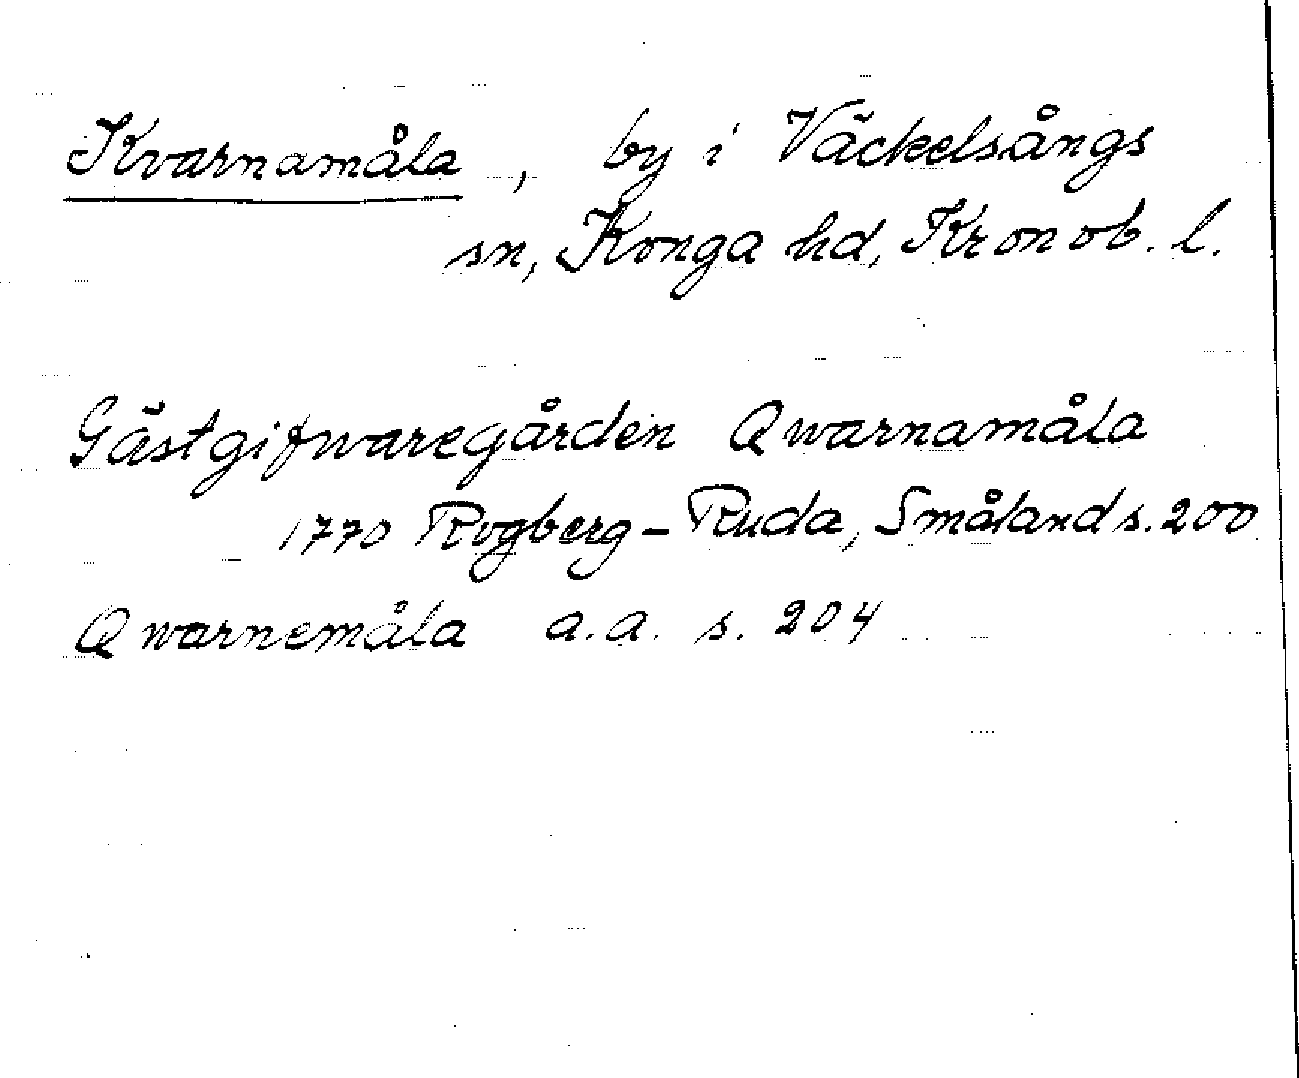 Kvarnamåla, by i Väckelsångs
sn, Konga hd, Kronob. l.
Gästgifwaregården Qwarnamåla
1770 Rogberg-Ruda, Småland s. 200
Qwarnemåla a.a. s. 204